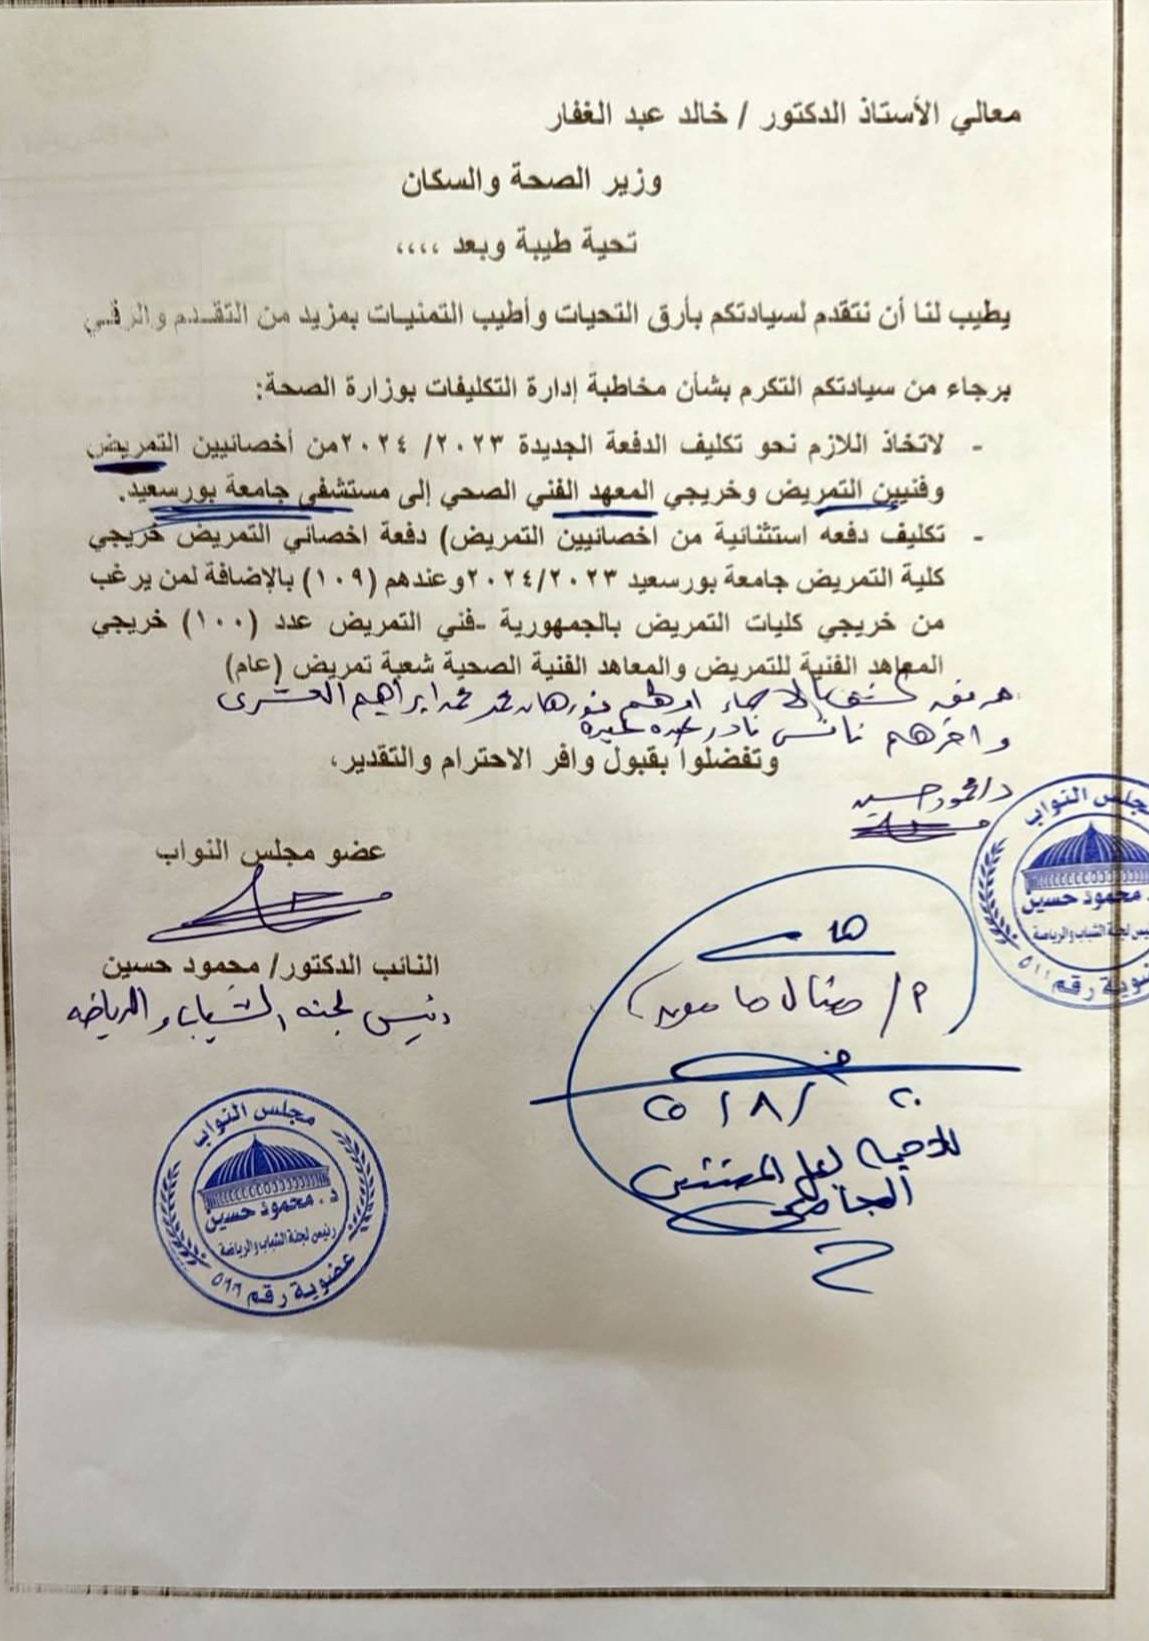 معالي الأستاذ الدكتور / خالد عبد الغفار
وزير الصحة والسكان
تحية طيبة وبعد ،،،،
يطيب لنا أن نتقدم لسيادتكم بأرق التحيات وأطيب التمنيات بمزيد من التقدم والرقي
برجاء من سيادتكم التكرم بشأن مخاطبة إدارة التكليفات بوزارة الصحة:
- لاتخاذ اللازم نحو تكليف الدفعة الجديدة ٢٠٢٣/ ٢٠٢٤من أخصائيين التمريض
وفنيين التمريض وخريجي المعهد الفني الصحي إلى مستشفى جامعة بورسعيد.
- تكليف دفعه استثنائية من اخصائيين التمريض) دفعة اخصائي التمريض خريجي
كلية التمريض جامعة بورسعيد ٢٠٢٤/٢٠٢٣وعندهم (١٠٩) بالإضافة لمن يرغب
من خريجي كليات التمريض بالجمهورية -فني التمريض عدد (١٠٠) خريجي
المعاهد الفنية للتمريض والمعاهد الفنية الصحية شعبة تمريض (عام)
مرفق كشف بالاسماء اولهم نورهان محمد محمد ابراهيم العشرى
واخرهم نانسى نادر عبده
وتفضلوا بقبول وافر الاحترام والتقدير،
د/محمود حسين
مجلس النواب
د. محمود حسين
رئيس لجنة الشباب والرياضة
عضوية رقم ٥١١
عضو مجلس النواب
النائب الدكتور/ محمود حسين
رئيس لجنة الشباب والرياضه
هام
م/
٢٠ / ٨ / ٢٥
المستشفى
الجامعى
مجلس النواب
د. محمود حسين
رئيس لجنة الشباب والرياضة
عضوية رقم ٥١١